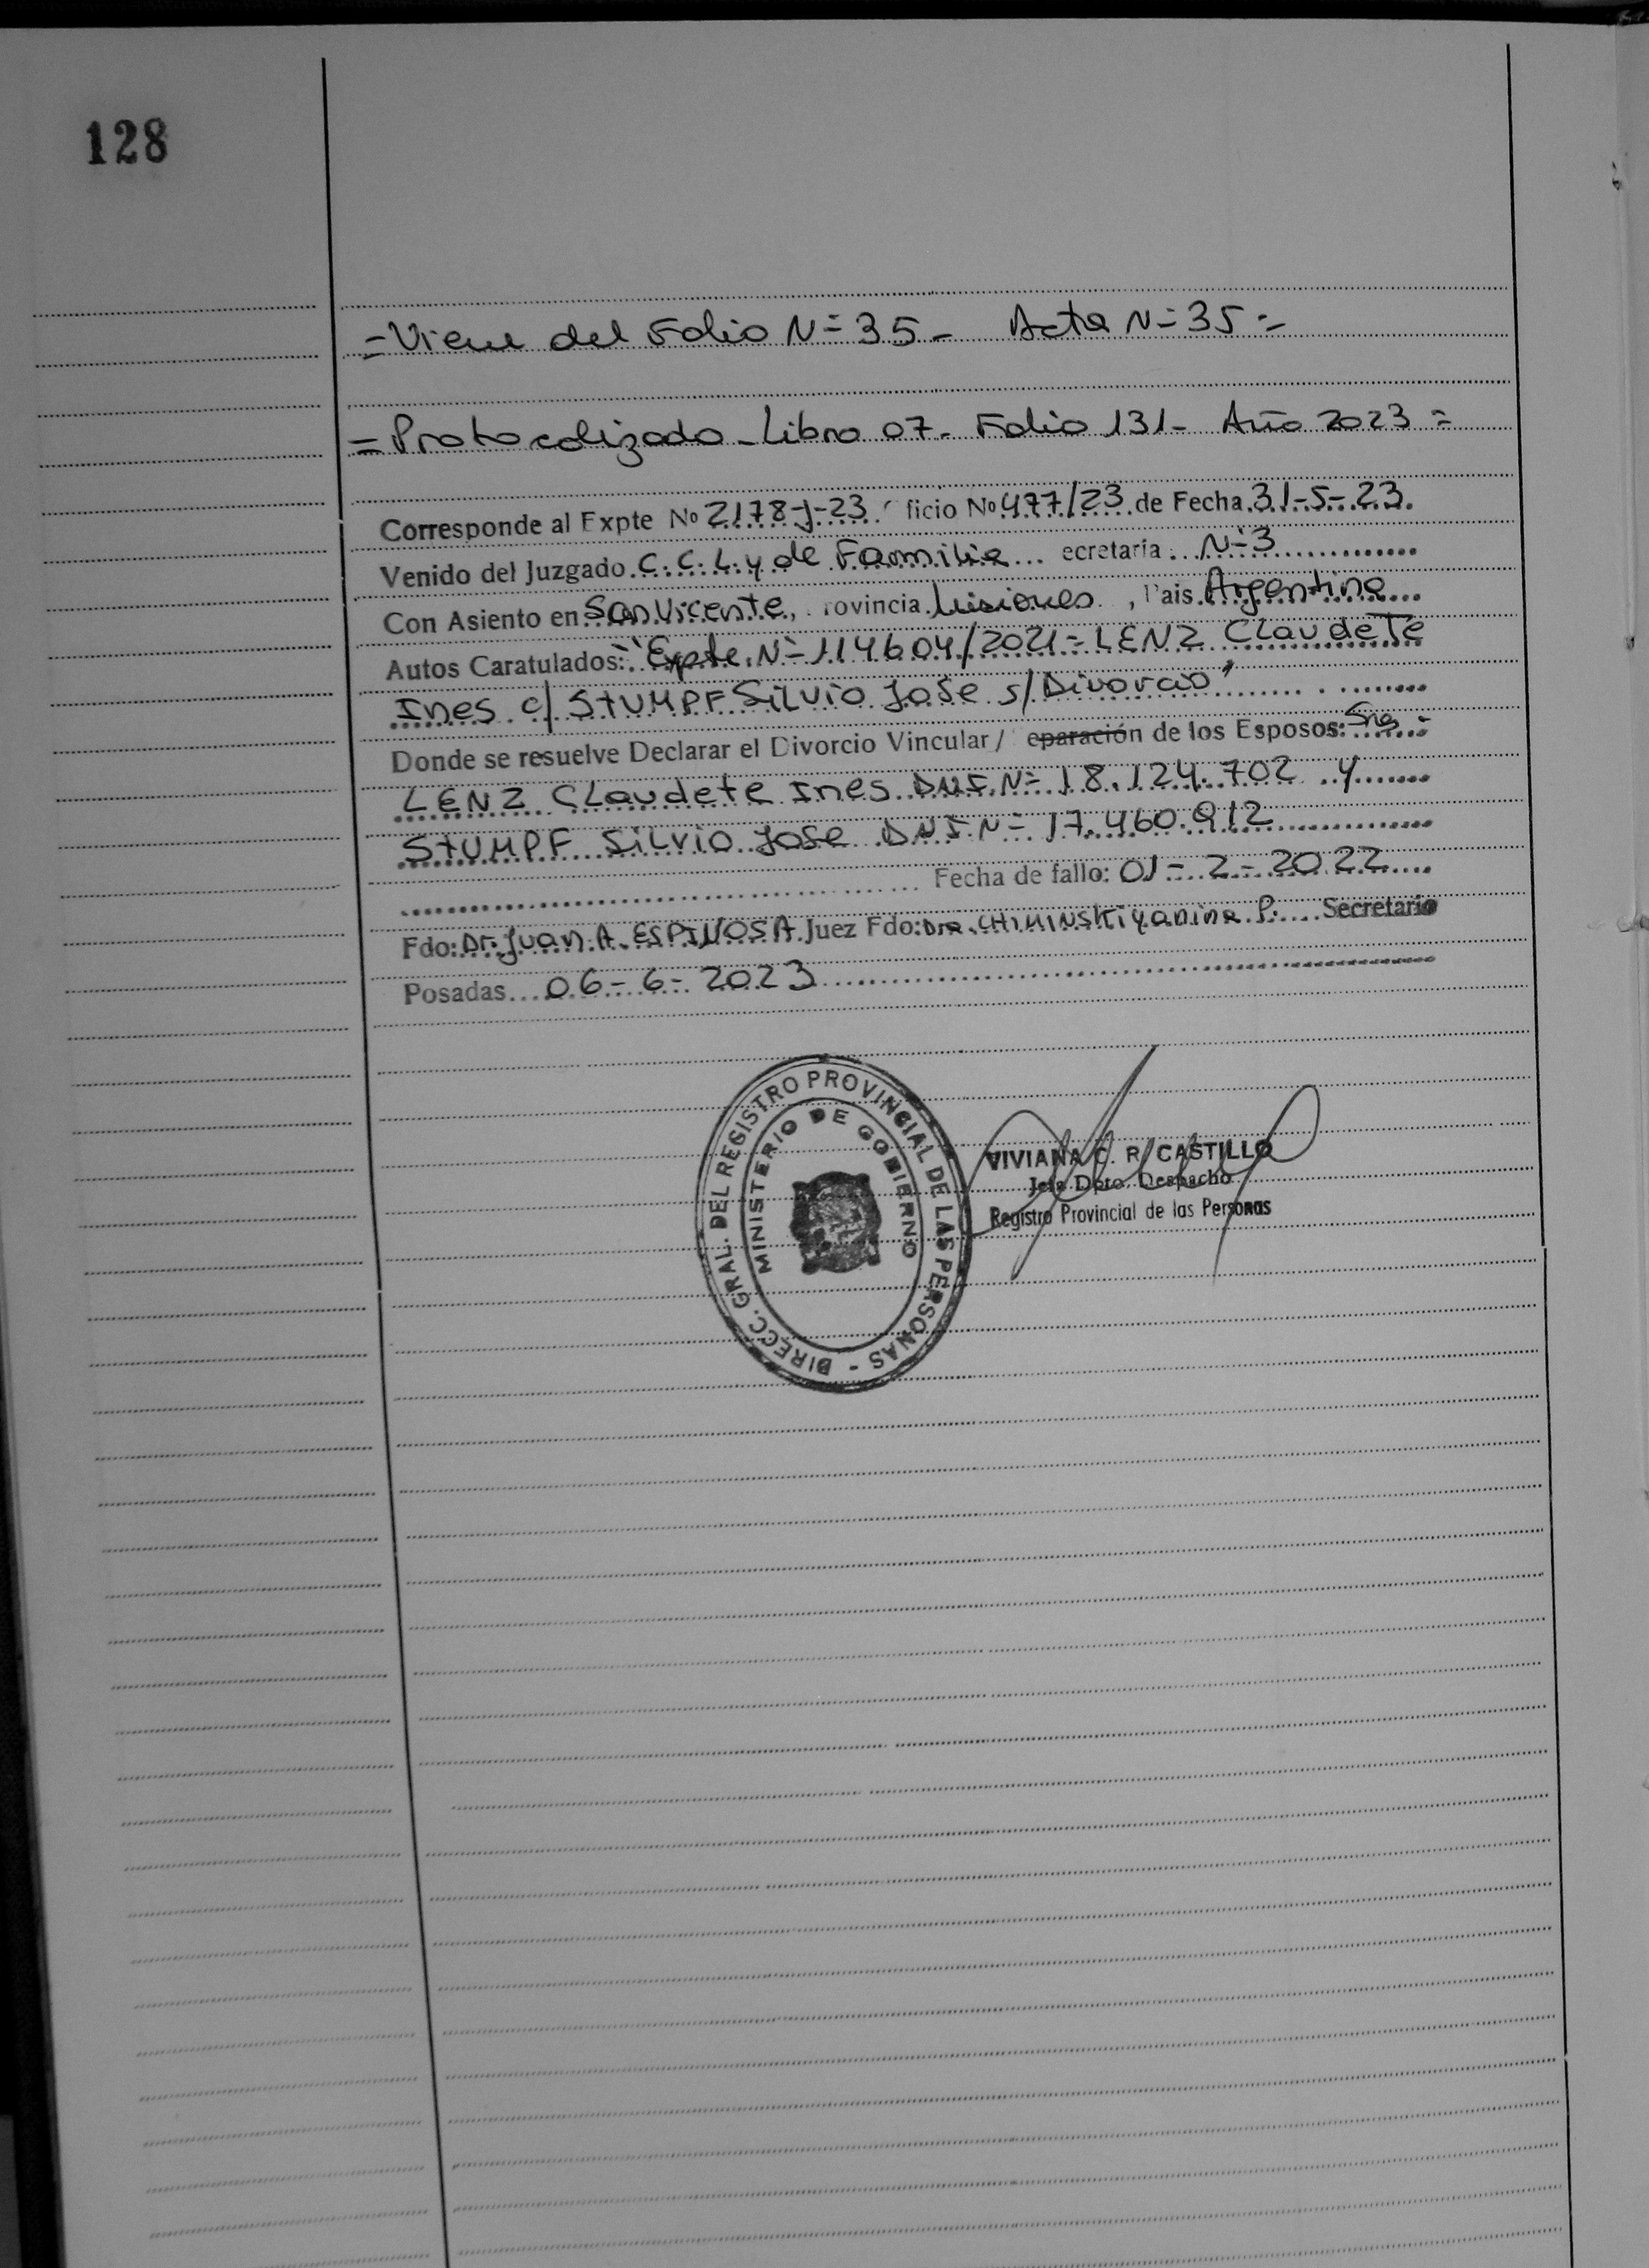 128
= Viene del Folio N= 35 - Acta N= 35 =
= Protocolizado - Libro 07 - Folio 131 - Año 2023 =
Corresponde al Expte Nº 2178-J-23 ficio Nº 477/23 de Fecha 31-5-23.
Venido del Juzgado C. C. L. y de Familia ecretaría: N=3
Con Asiento en San Vicente, rovincia Misiones, Pais Argentina
Autos Caratulados: "Expte. N= 114604/2021 = LENZ Claudete
Ines c/ STUMPF Silvio Jose s/ Divorcio"
Donde se resuelve Declarar el Divorcio Vincular / eparación de los Esposos:
LENZ Claudete Ines DNI. N= 18.124.702 y
STUMPF Silvio Jose DNI N= 17.460.912
Fecha de fallo: 01 - 2 - 2022
Fdo: Dr. Juan A. ESPINOSA Juez Fdo: Dra. CHIMINSKI Yanina P. Secretario
Posadas 06 - 6 - 2023
DIRECC. GRAL. DEL REGISTRO PROVINCIAL DE LAS PERSONAS -
MINISTERIO DE GOBIERNO
VIVIANA C. R. CASTILLO
Jefa Dpto. Despacho
Registro Provincial de las Personas